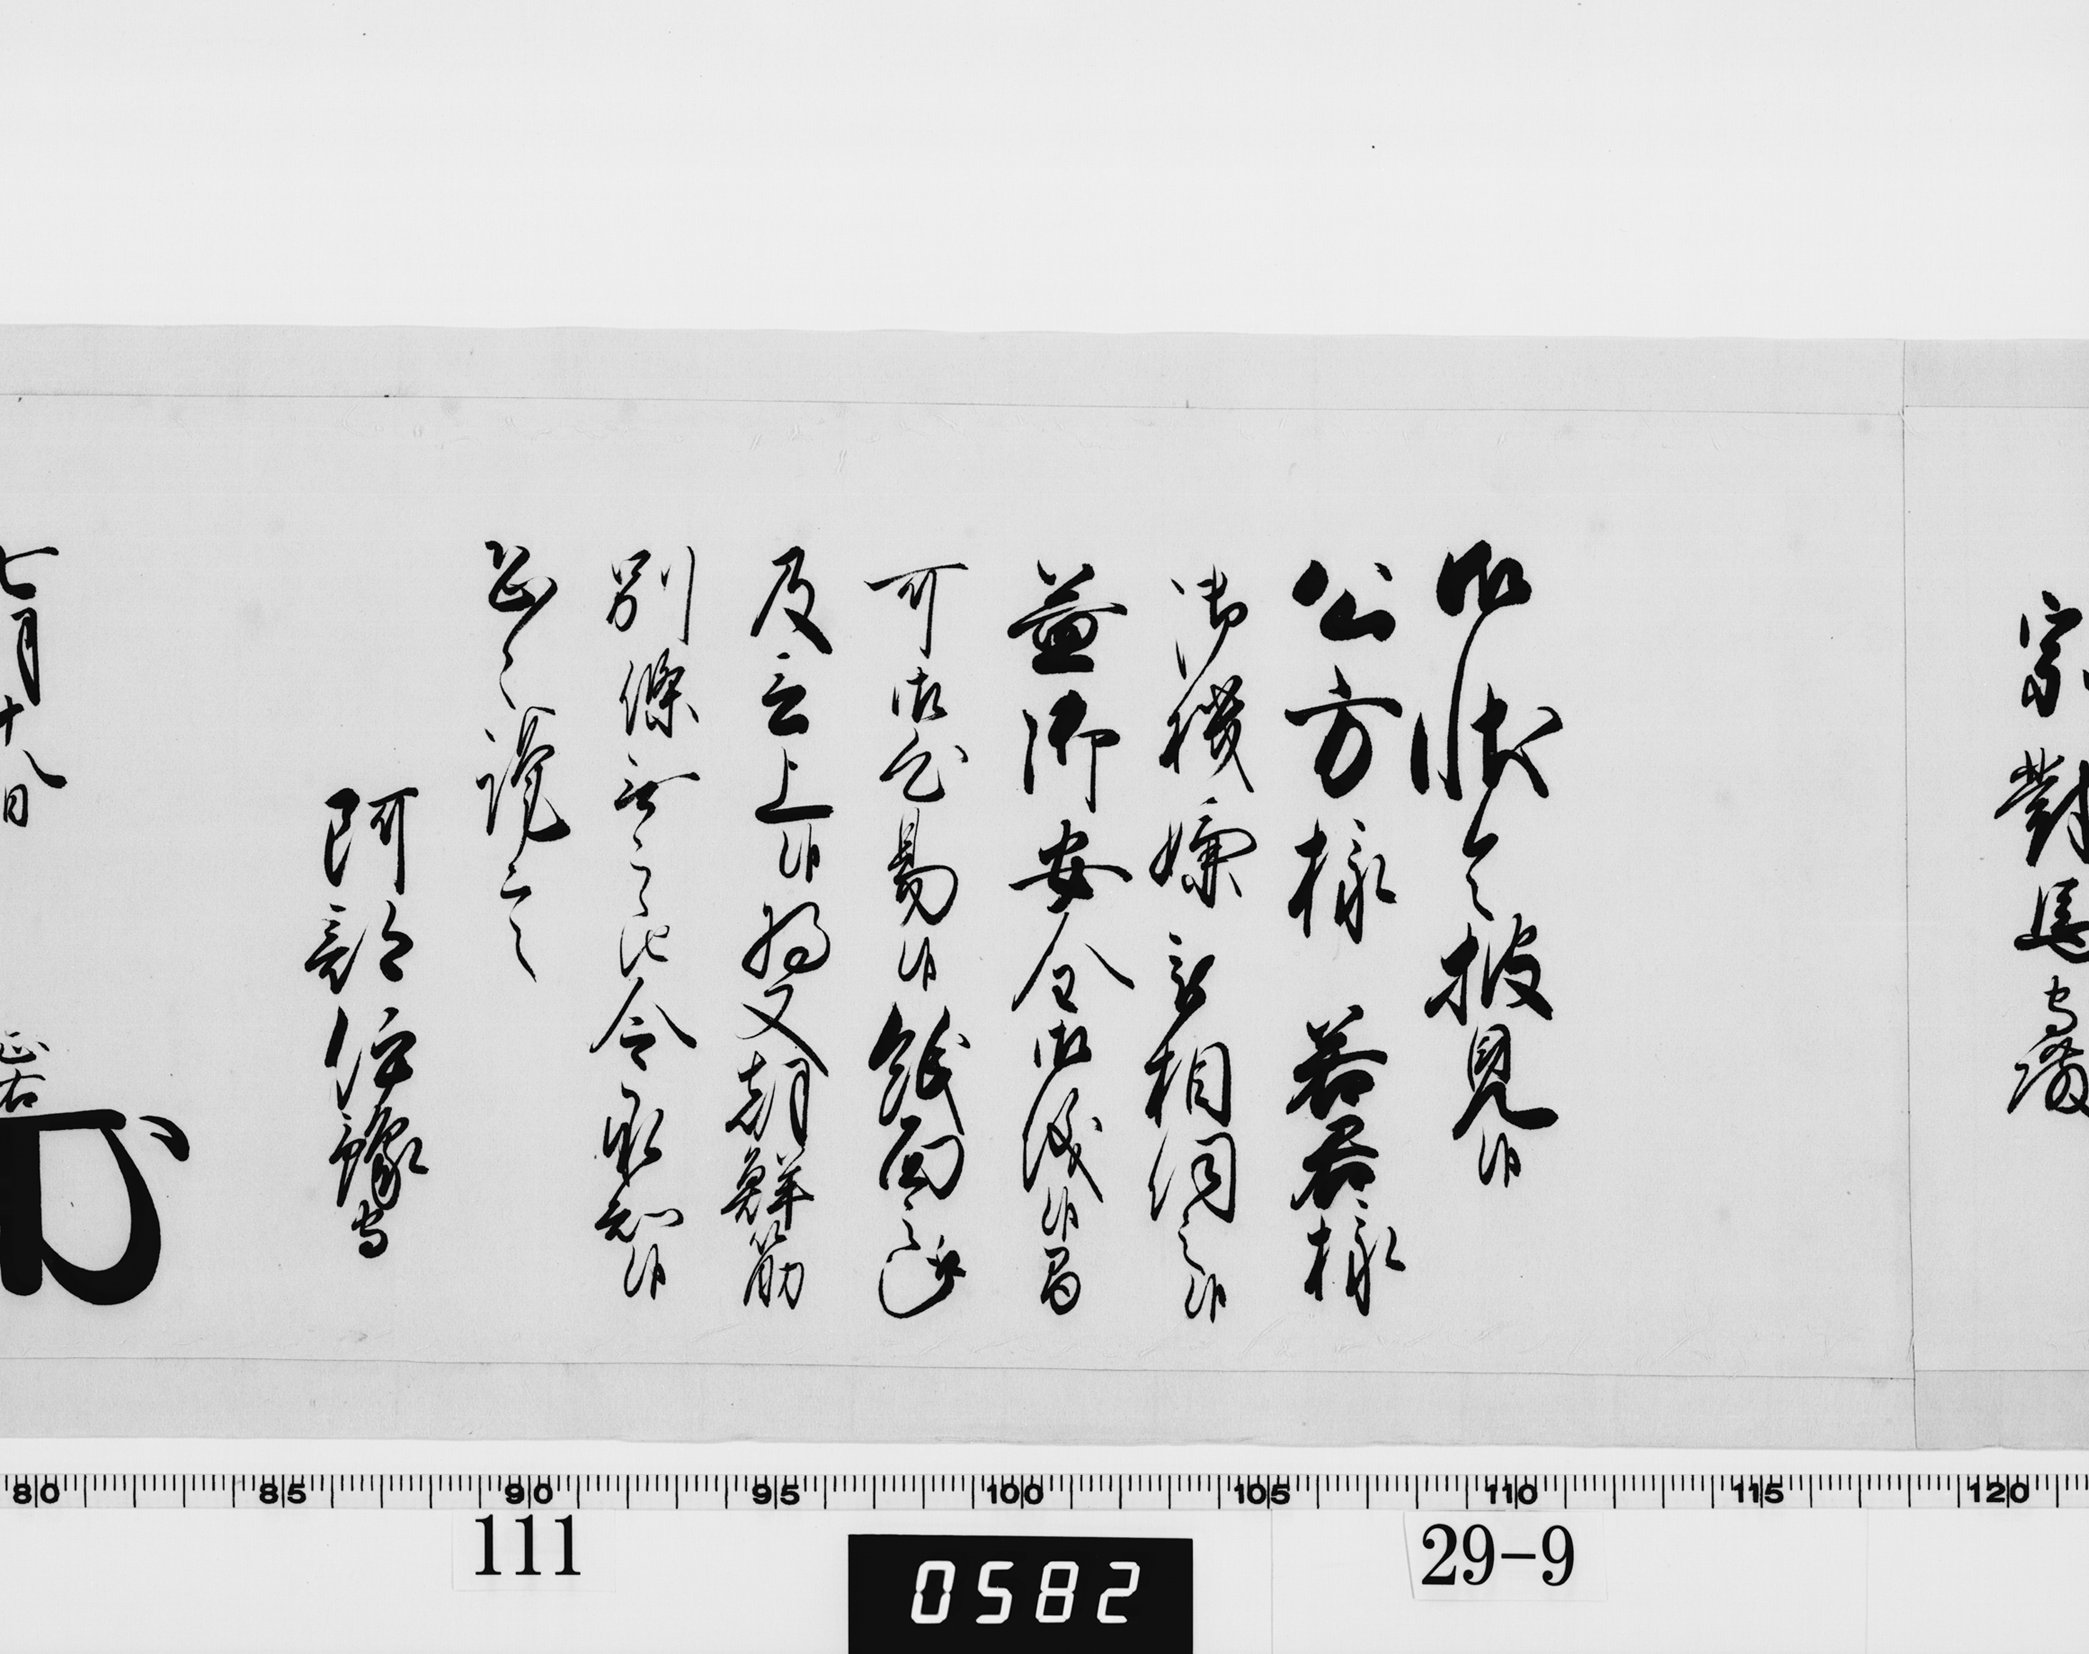 宗對馬守殿
御状令披見候
公方様 若君様
御機嫌被相伺之候
益御安全御儀候間
可御心易候紙面之趣
及言上候将又朝鮮筋
別條無之段令承知候
恐々謹言
阿部伊豫守
七月十八日
正右
80 85 90 95 100 105 110 115 120
111
29-9
0582